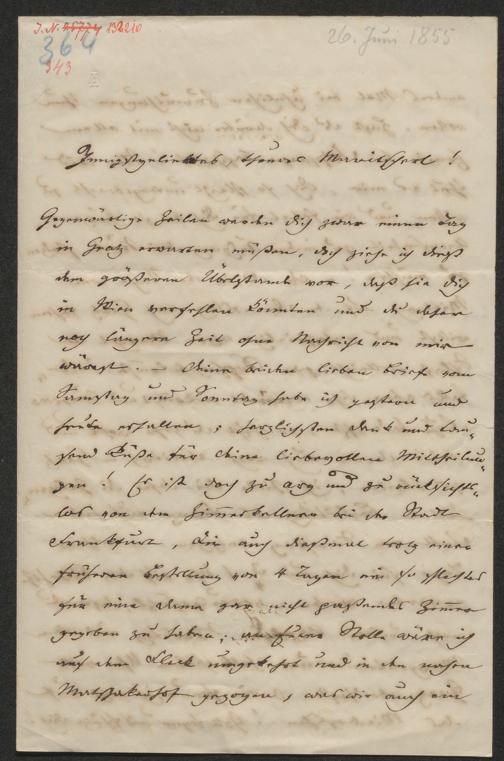 I.N. 25774 132210
364
343
26. Juni 1855
Innigstgeliebtes, theures Maritscherl!
Gegenwärtige Zeilen werden dich zwar einen Tag
in Gratz erwarten müßen, doch ziehe ich dieß
dem größeren Übelstande vor, daß sie dich
in Wien verfehlen könnten und du daher
noch längere Zeit ohne Nachricht von mir
wärest. – Deine beiden lieben Briefe vom
Samstag und Sonntag habe ich gestern und
heute erhalten; herzlichsten Dank und tau-
send Küße für deine liebevollen Mittheilun-
gen! Es ist doch zu arg und zu rücksichts-
los von dem Zimmerkellner bei der Stadt
Frankfurt, dir auch dießmal trotz einer
früheren Bestellung von 4 Tagen ein so schlechtes
für eine Dame gar nicht paßendes Zimmer
gegeben zu haben; an deiner Stelle wäre ich
auf dem Fleck umgekehrt und in den nahen
Matschakerhof gezogen, was wir auch ein